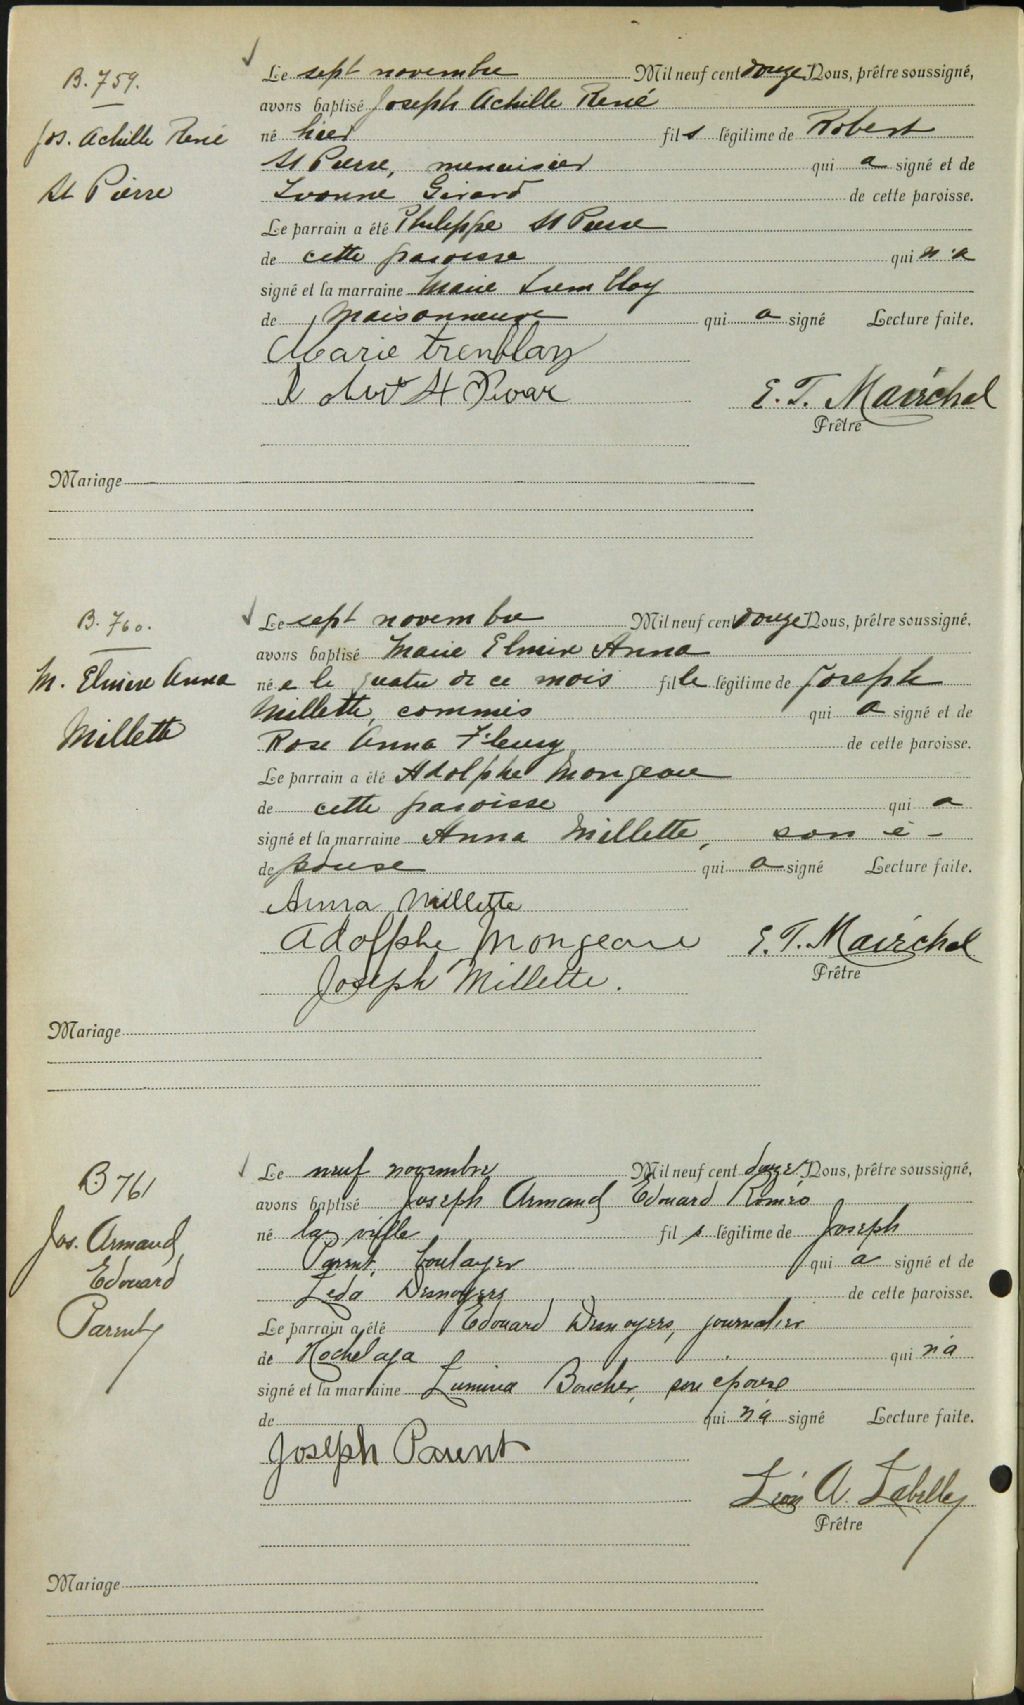 B. 759.
Jos. Achille René
St Pierre
Le sept novembre Mil neuf cent douze Nous, prêtre soussigné,
avons baptisé Joseph Achille René
né hier fils légitime de Robert
St Pierre, menuisier qui a signé et de
Yvonne Girard de cette paroisse.
Le parrain a été Philippe St Pierre
de cette paroisse qui n'a
signé et la marraine Marie Tremblay
de Maisonneuve qui a signé Lecture faite.
Marie Tremblay
Robert St
E. T. Maréchal
Prêtre
Mariage
B. 760.
M. Elmire Anna
Millette
Le sept novembre Mil neuf cent douze Nous, prêtre soussigné,
avons baptisé Marie Elmire Anna
née le quatre de ce mois fille légitime de Joseph
Millette, commis qui a signé et de
Rose Anna Fleury de cette paroisse.
Le parrain a été Adolphe Mongeau
de cette paroisse qui a
signé et la marraine Anna Millette, son é-
de pouse qui a signé Lecture faite.
Anna Millette
Adolphe Mongeau
Joseph Millette.
E. T. Maréchal
Prêtre
Mariage
B 761
Jos. Armand
Edouard
Parent
Le neuf novembre Mil neuf cent douze Nous, prêtre soussigné,
avons baptisé Joseph Armand Edouard Roméo
né la veille fils légitime de Joseph
Parent, boulanger qui a signé et de
Léda Desnoyers de cette paroisse.
Le parrain a été Edouard Desnoyers, journalier
de Hochelaga qui n'a
signé et la marraine Lumina Boucher, son épouse
de qui n'a signé Lecture faite.
Joseph Parent
Léon A. Labelle
Prêtre
Mariage